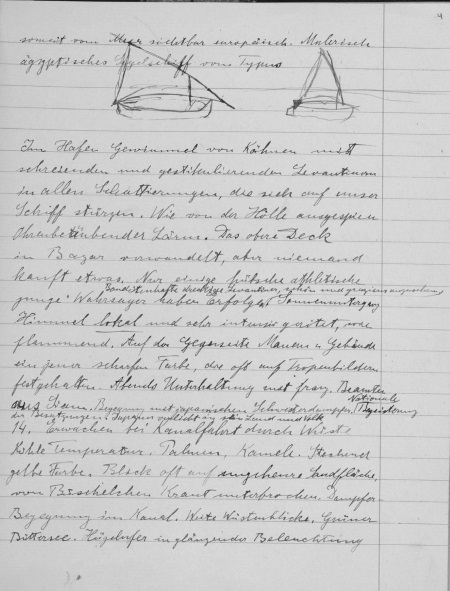 4
soweit vom Meer sichtbar europäisch. Malerisch
ägyptisches Segelschiff vom Typus
Im Hafen Gewimmel von Kähnen mit
schreienden und gestikulierenden Levantinern
in allen Schattierungen, die sich auf unser
Schiff stürzen. Wie von der Hölle ausgespien
Ohrenbetäubender Lärm. Das obere Deck
in Bazar verwandelt, aber niemand
kauft etwas. Nur einige hübsche athletische
Banditenhafte dreckige Levantiner, schön und graziös anzusehen,
junge Wahrsager haben Erfolg. Sonnenuntergang
Himmel lokal und sehr intensiv rötet, wie
flammend. Auf der Gegenseite Mauern u Gebäude
in jener scharfen Farbe, die oft auf Tropenbildern
festgehalten. Abends Unterhaltung mit franz. Beamten
aus Siam. Begegnung mit japanischem Schwesterdampfer. Nationale Begeisterung
der Japaner verliebt in ihr Land und Volk
14. Erwachen bei Kanalfahrt durch Wüste
Kühle Temperatur. Palmen, Kamele. Stechend
gelbe Farbe. Blick oft auf ungeheure Sandfläche,
von Büschelchen Kraut unterbrochen. Dampfer
Begegnung im Kanal. Weite Wüstenblicke. Grüner
Bittersee. Hügelufer in glänzender Beleuchtung